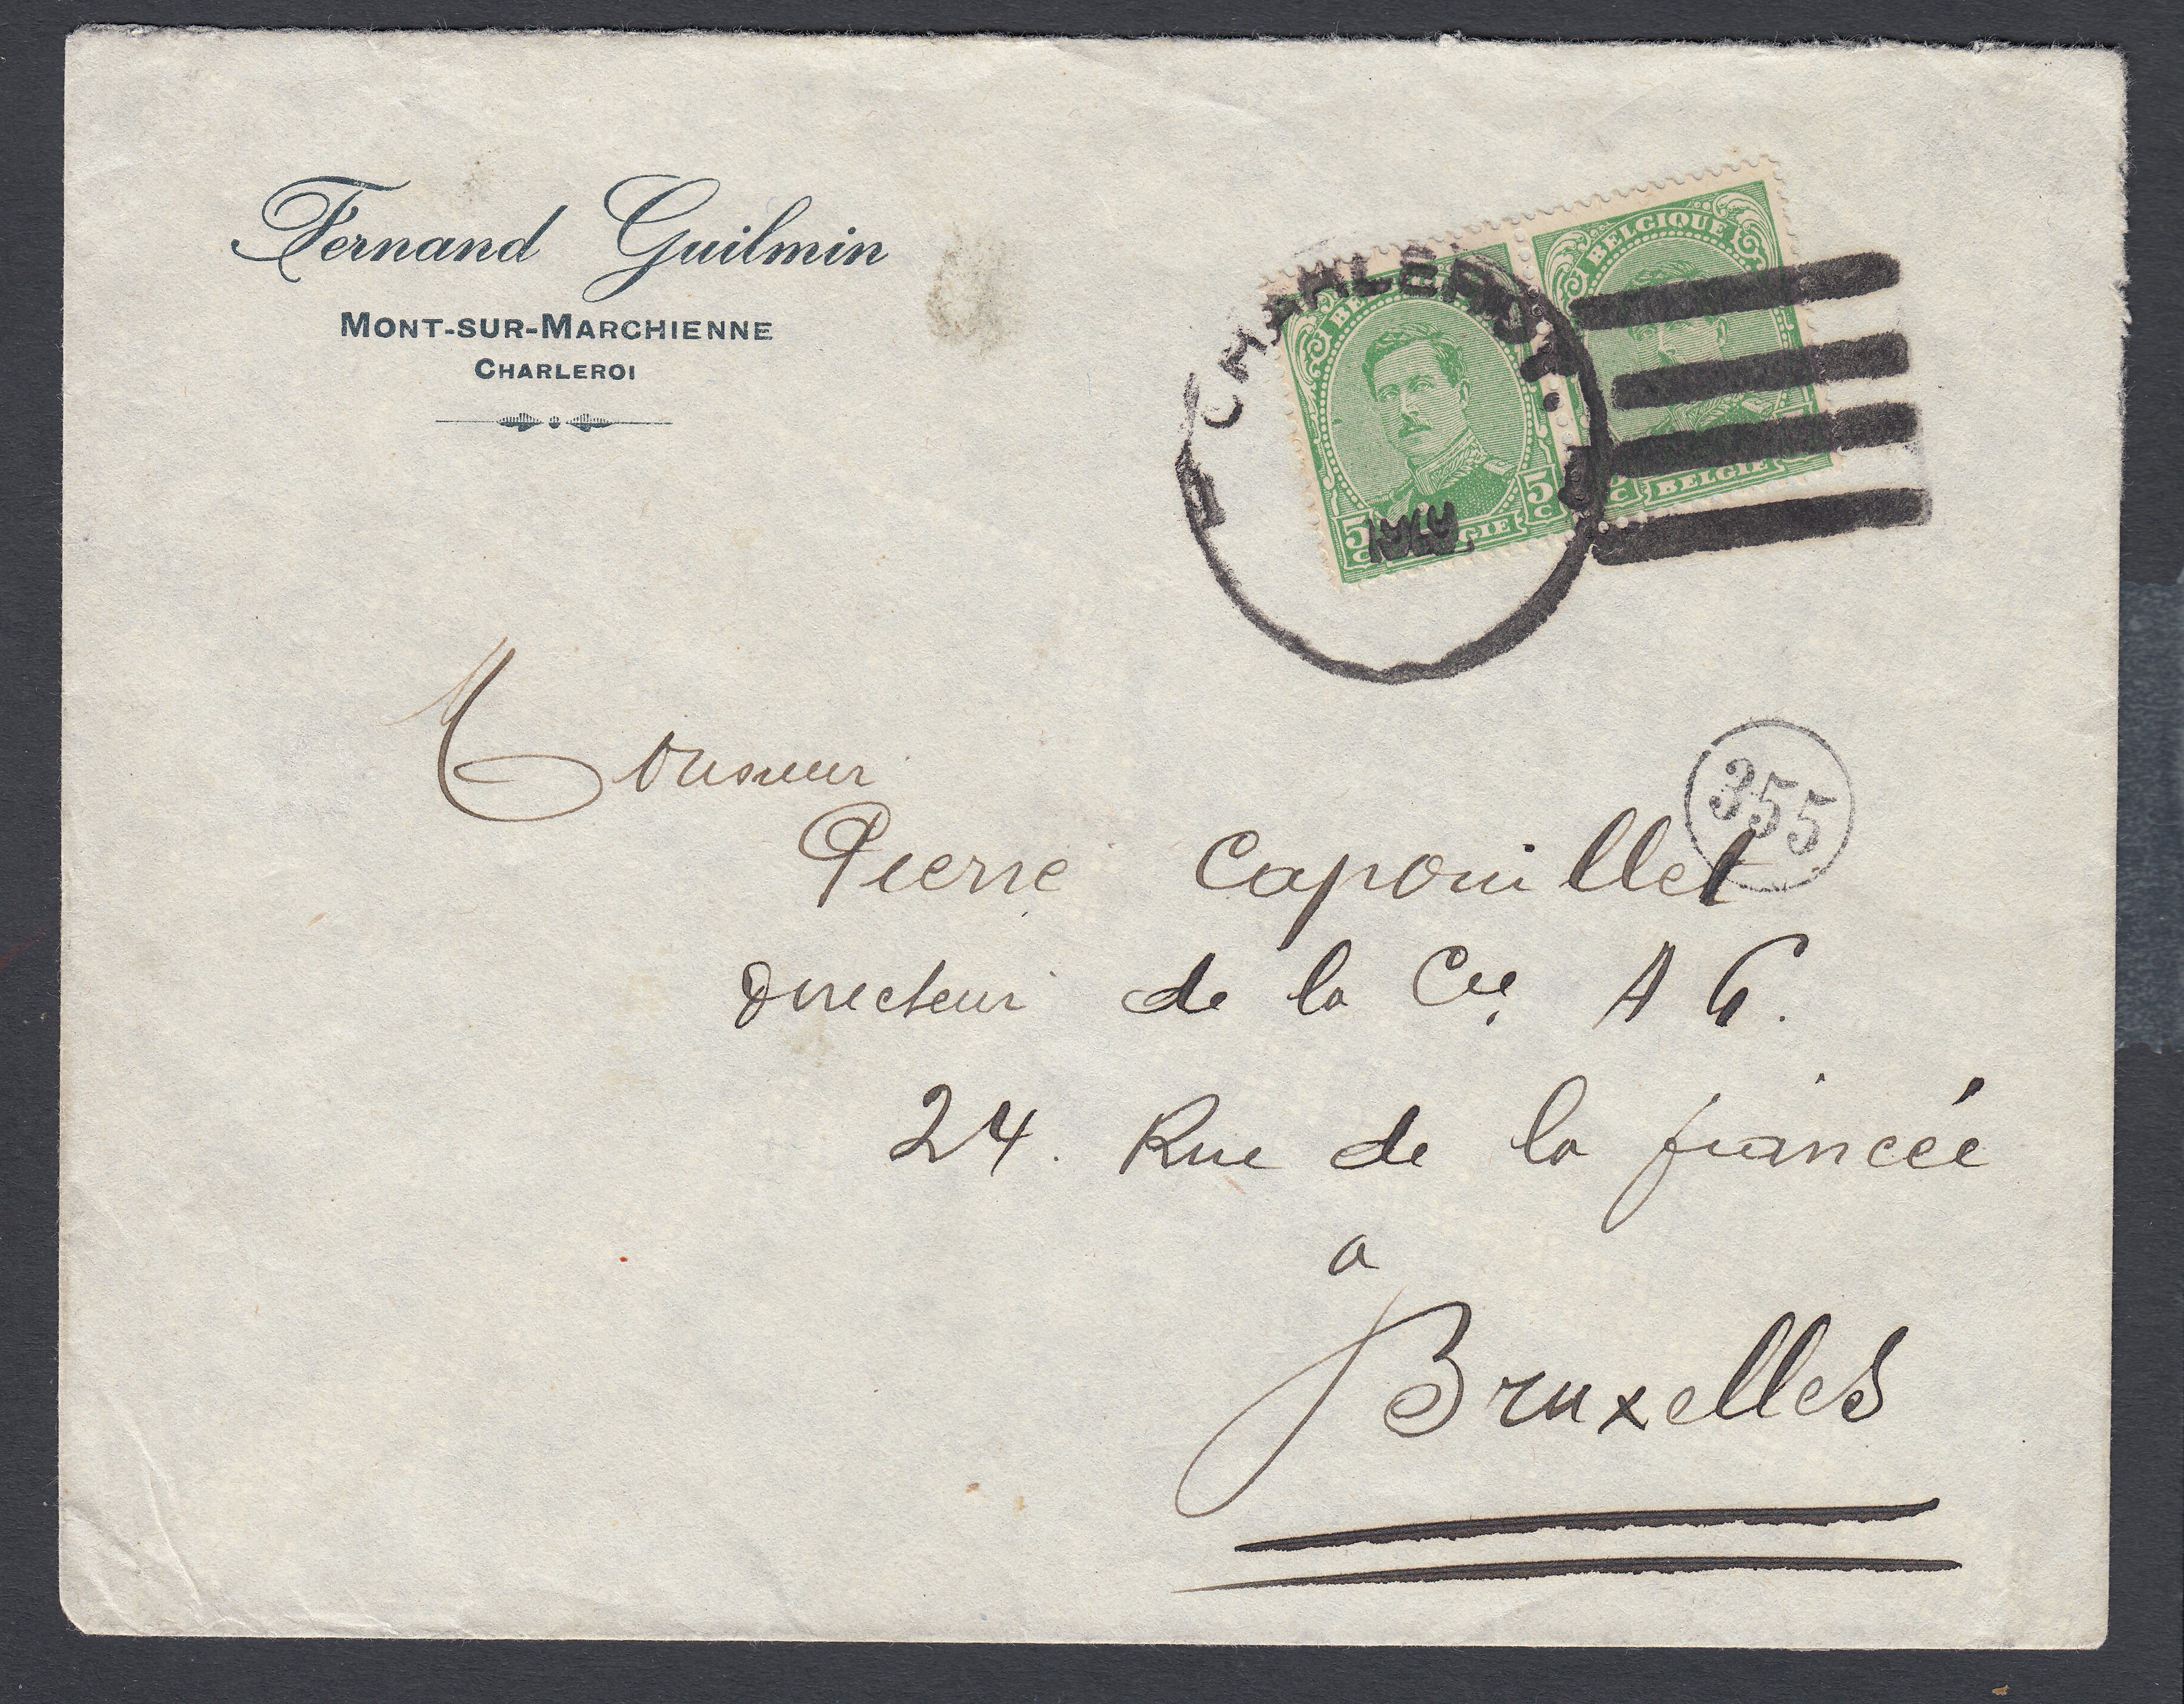 Fernand Guilmin
MONT-SUR-MARCHIENNE
CHARLEROI
CHARLEROY.
1919.
BELGIQUE
5 C BELGIE 5 C
355
Monsieur
Pierre Capouillet
Directeur de la Cie. A G.
24. Rue de la fiancée
a
Bruxelles